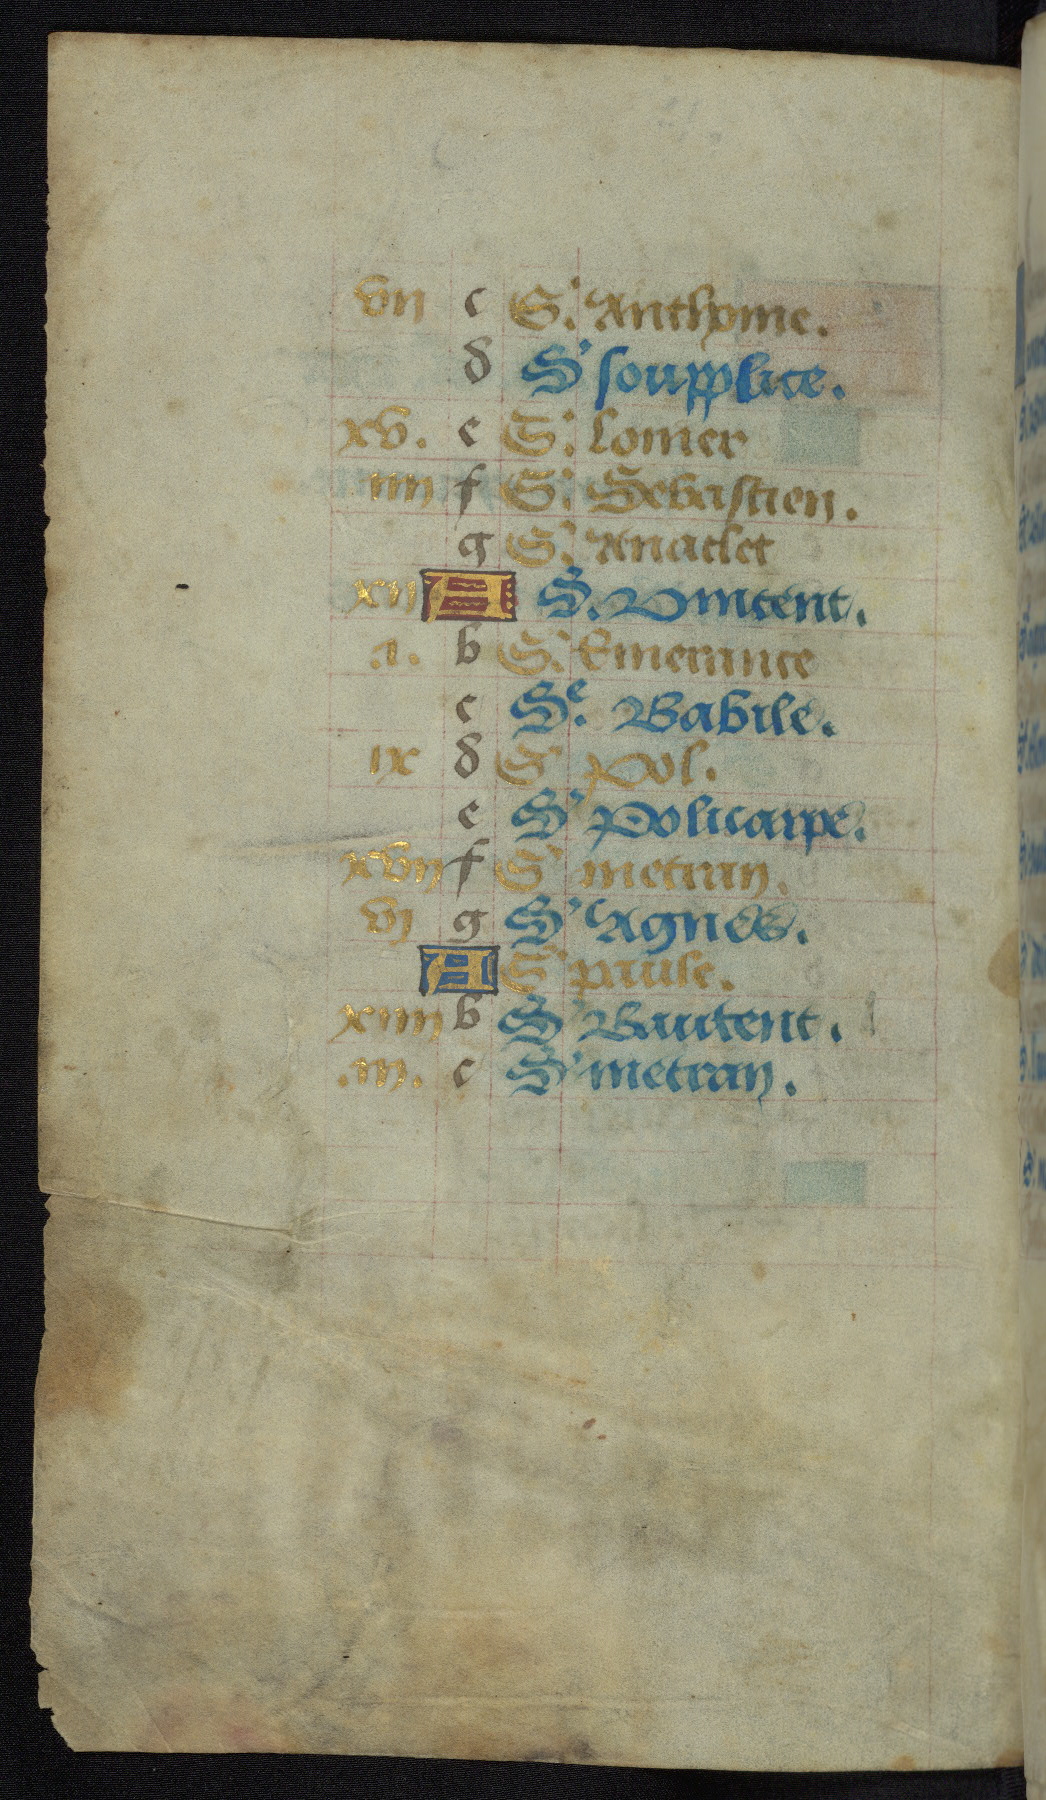 vii c S. Anthoine.
d S' soupplice.
xv. e S. Lomer
iiii f S. Sebastien.
g S. Anaclet
xii A S. Vincent.
.i. b S. Emerance
c Se. Babile.
ix d S' pol.
e S' policarpe.
xvii f S' metran.
vi g S' Agnes.
A S' paule.
xiiii b S' Bautent.
.iii. c S' metran.